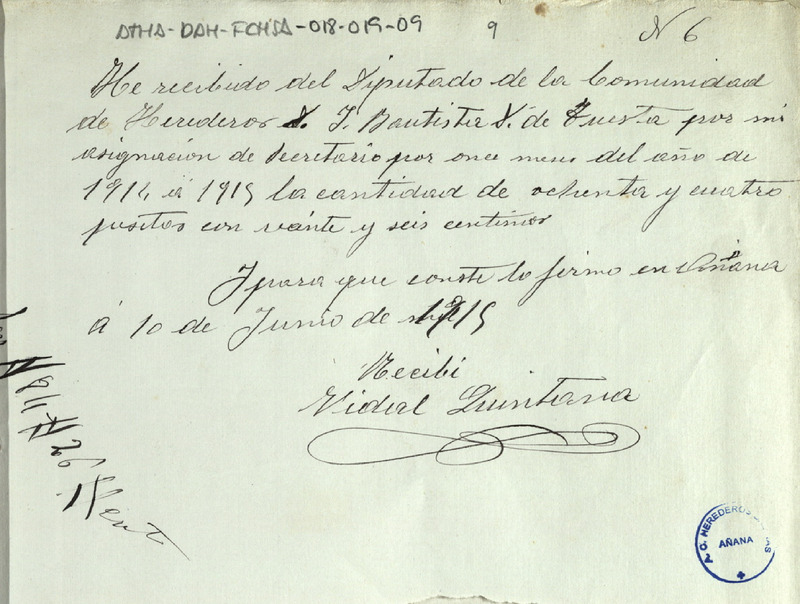 ATHA-DAH-FCHSA-018-019-09 9 N 6
He recibido del Diputado de la Comunidad
de Herederos D. J. Bautista D. de Tuesta por mi
asignacion de Secretario por once meses del año de
1914 á 1915 la cantidad de ochenta y cuatro
pesetas con vainte y seis centimos
I para que conste lo firmo en Añana
á 10 de Junio de 1915
Recibi
Vidal Quintana
84 # 26
HEREDEROS
AÑANA